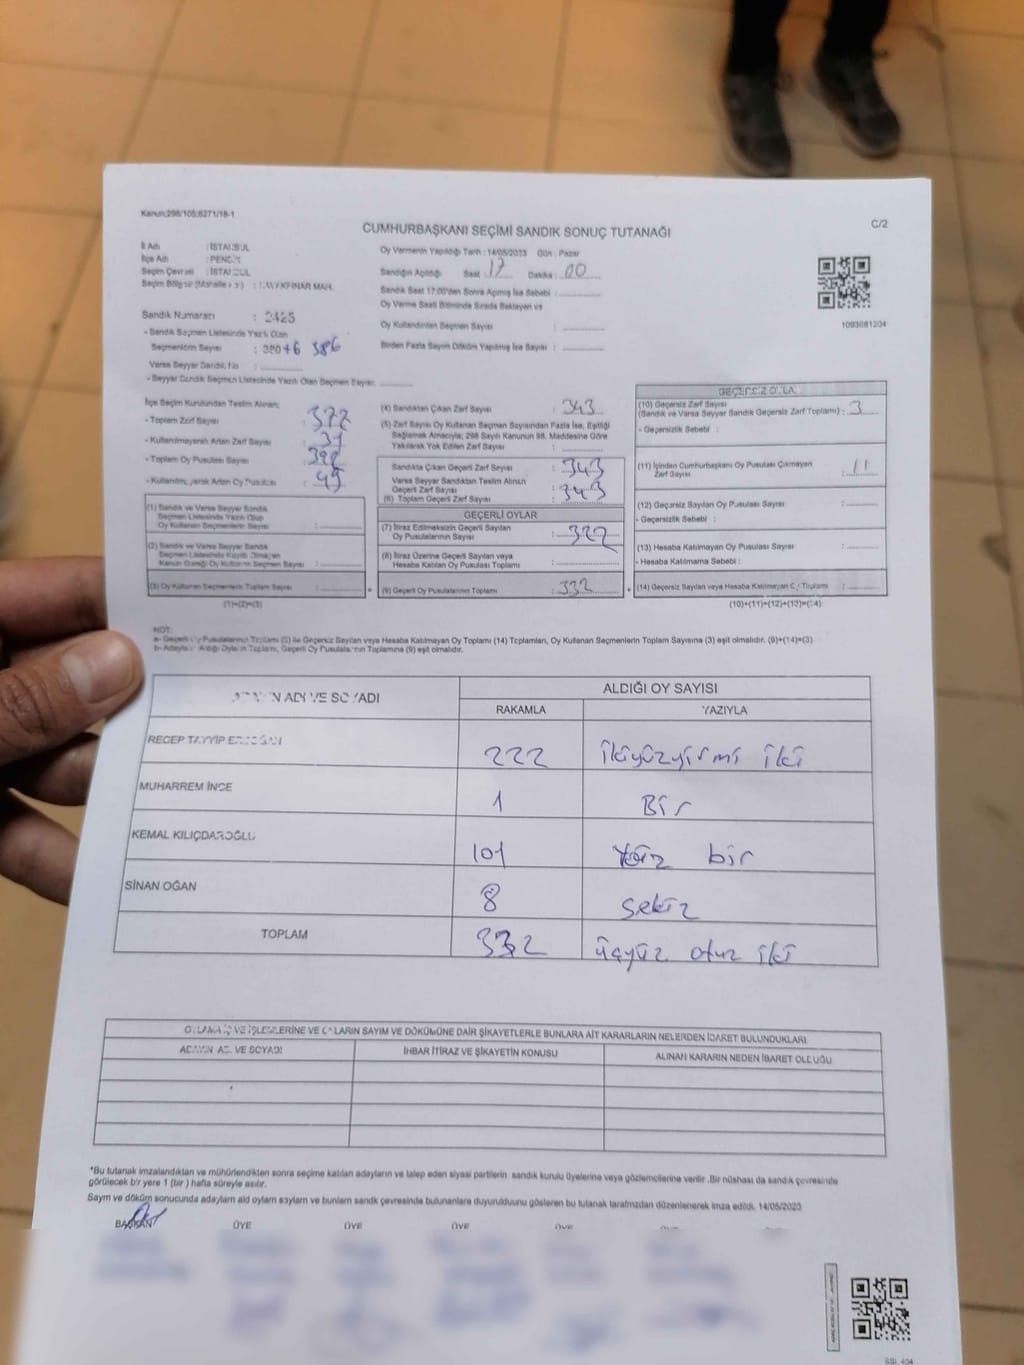 Kanun;298/105;6271/18-1
C/2
CUMHURBAŞKANI SEÇİMİ SANDIK SONUÇ TUTANAĞI
İl Adı : İSTANBUL
İlçe Adı : PENDİK
Seçim Çevresi : İSTANBUL
Seçim Bölgesi (Mahalle / Köy) : KAVAKPINAR MAH.
Oy Vermenin Yapıldığı Tarih : 14/05/2023 Gün : Pazar
Sandığın Açıldığı Saat : 17 Dakika : 00
Sandık Saat 17:00'den Sonra Açılmış İse Sebebi :
Oy Verme Saati Bitiminde Sırada Bekleyen ve
Oy Kullandırılan Seçmen Sayısı :
Birden Fazla Sayım Döküm Yapılmış İse Sayısı :
1093681204
Sandık Numarası :
- Sandık Seçmen Listesinde Yazılı Olan
Seçmenlerin Sayısı : 386
Varsa Seyyar Sandık No :
- Seyyar Sandık Seçmen Listesinde Yazılı Olan Seçmen Sayısı:
İlçe Seçim Kurulundan Teslim Alınan;
- Toplam Zarf Sayısı :
- Kullanılmayarak Artan Zarf Sayısı :
- Toplam Oy Pusulası Sayısı :
- Kullanılmayarak Artan Oy Pusulası :
(1) Sandık ve Varsa Seyyar Sandık
Seçmen Listesinde Yazılı Olup
Oy Kullanan Seçmen Sayısı :
(2) Sandık ve Varsa Seyyar Sandık
Seçmen Listesinde Kayıtlı Olmayan
Kanun Gereği Oy Kullanan Seçmen Sayısı :
(3) Oy Kullanan Seçmenlerin Toplam Sayısı :
(1)+(2)=(3)
(4) Sandıktan Çıkan Zarf Sayısı : 343
(5) Zarf Sayısı Oy Kullanan Seçmen Sayısından Fazla İse, Eşitliği
Sağlamak Amacıyla; 298 Sayılı Kanunun 98. Maddesine Göre
Yakılarak Yok Edilen Zarf Sayısı :
Sandıkta Çıkan Geçerli Zarf Sayısı : 343
Varsa Seyyar Sandıktan Teslim Alınan
Geçerli Zarf Sayısı :
(6) Toplam Geçerli Zarf Sayısı : 343
GEÇERLİ OYLAR
(7) İtiraz Edilmeksizin Geçerli Sayılan
Oy Pusulalarının Sayısı :
(8) İtiraz Üzerine Geçerli Sayılan veya
Hesaba Katılan Oy Pusulası Toplamı :
(9) Geçerli Oy Pusulalarının Toplamı : 332
GEÇERSİZ OYLAR
(10) Geçersiz Zarf Sayısı
(Sandık ve Varsa Seyyar Sandık Geçersiz Zarf Toplamı) : 3
- Geçersizlik Sebebi :
(11) İçinden Cumhurbaşkanı Oy Pusulası Çıkmayan
Zarf Sayısı : 11
(12) Geçersiz Sayılan Oy Pusulası Sayısı :
- Geçersizlik Sebebi :
(13) Hesaba Katılmayan Oy Pusulası Sayısı :
- Hesaba Katılmama Sebebi :
(14) Geçersiz Sayılan veya Hesaba Katılmayan Oy Toplamı :
(10)+(11)+(12)+(13)=(14)
NOT:
a- Geçerli Oy Pusulalarının Toplamı (9) ile Geçersiz Sayılan veya Hesaba Katılmayan Oy Toplamı (14) Toplamları, Oy Kullanan Seçmenlerin Toplam Sayısına (3) eşit olmalıdır. (9)+(14)=(3)
b- Adayların Aldığı Oyların Toplamı, Geçerli Oy Pusulalarının Toplamına (9) eşit olmalıdır.
ADAYIN ADI VE SOYADI
ALDIĞI OY SAYISI
RAKAMLA YAZIYLA
RECEP TAYYİP ERDOĞAN 222 ikiyüzyirmi iki
MUHARREM İNCE 1 Bir
KEMAL KILIÇDAROĞLU 101 Yüz bir
SİNAN OĞAN 8 sekiz
TOPLAM 332 üçyüz otuz iki
OYLAMA İŞ VE İŞLEMLERİNE VE OYLARIN SAYIM VE DÖKÜMÜNE DAİR ŞİKAYETLERLE BUNLARA AİT KARARLARIN NELERDEN İBARET BULUNDUKLARI
ADAYIN ADI VE SOYADI İHBAR İTİRAZ VE ŞİKAYETİN KONUSU ALINAN KARARIN NEDEN İBARET OLDUĞU
*Bu tutanak imzalandıktan ve mühürlendikten sonra seçime katılan adayların ve talep eden siyasi partilerin sandık kurulu üyelerine veya gözlemcilerine verilir .Bir nüshası da sandık çevresinde
görülecek bir yere 1 (bir ) hafta süreyle asılır.
Sayım ve döküm sonucunda adayların aldığı oyların sayıları ve bunların sandık çevresinde bulunanlara duyurulduğunu gösteren bu tutanak tarafımızdan düzenlenerek imza edildi. 14/05/2023
BAŞKAN ÜYE ÜYE ÜYE ÜYE